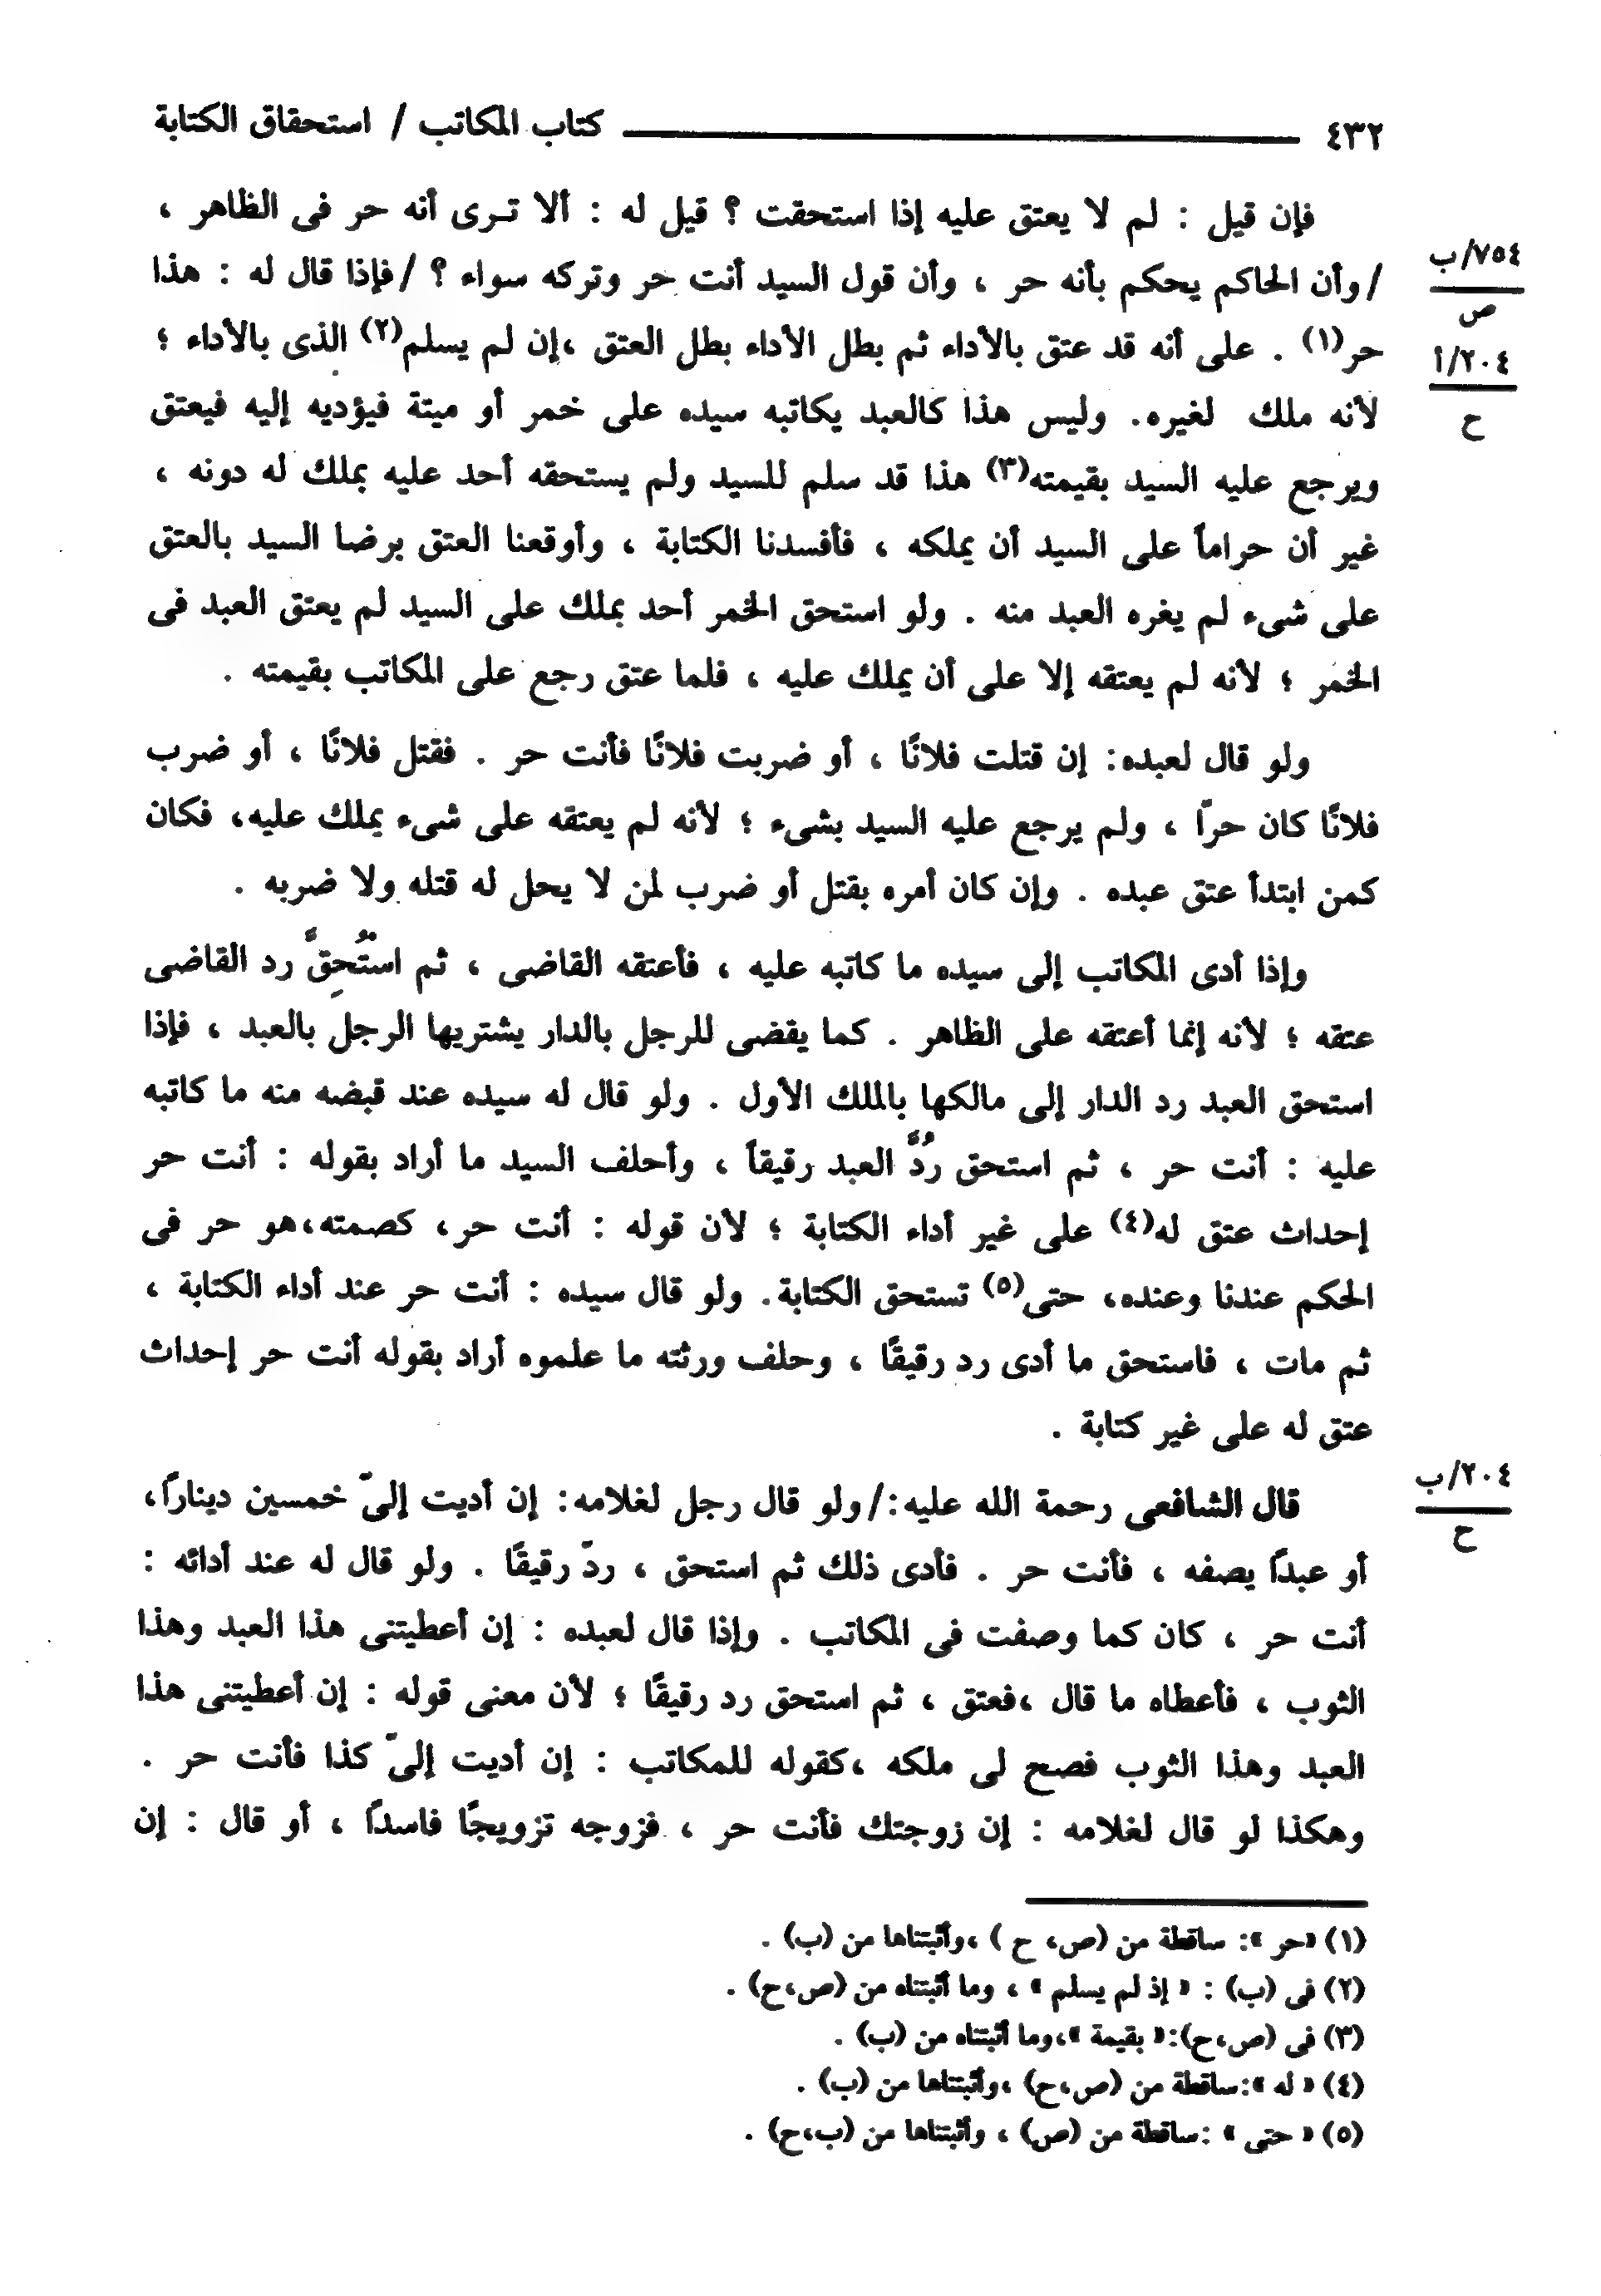 ٤٣٢ كتاب المكاتب / استحقاق الكتابة
فإن قيل : لم لا يعتق عليه إذا استحقت ؟ قيل له : ألا تـرى أنه حر فى الظاهر ،
/ وأن الحاكم يحكم بأنه حر ، وأن قول السيد أنت حر وتركه سواء ؟ / فإذا قال له : هذا
٧٥٤/ب
ص
حر(١) . على أنه قد عتق بالأداء ثم بطل الأداء بطل العتق ،إن لم يسلم(٢) الذى بالأداء ؛
٢٠٤/أ
ح
لأنه ملك لغيره. وليس هذا كالعبد يكاتبه سيده على خمر أو ميتة فيؤديه إليه فيعتق
ويرجع عليه السيد بقيمته(٣) هذا قد سلم للسيد ولم يستحقه أحد عليه بملك له دونه ،
غير أن حراماً على السيد أن يملكه ، فأفسدنا الكتابة ، وأوقعنا العتق برضا السيد بالعتق
على شىء لم يغره العبد منه . ولو استحق الخمر أحد بملك على السيد لم يعتق العبد فى
الخمر ؛ لأنه لم يعتقه إلا على أن يملك عليه ، فلما عتق رجع على المكاتب بقيمته .
ولو قال لعبده: إن قتلت فلانًا ، أو ضربت فلانًا فأنت حر . فقتل فلانًا ، أو ضرب
فلانًا كان حرّا ، ولم يرجع عليه السيد بشىء ؛ لأنه لم يعتقه على شىء يملك عليه، فكان
كمن ابتدأ عتق عبده . وإن كان أمره بقتل أو ضرب لمن لا يحل له قتله ولا ضربه .
وإذا أدى المكاتب إلى سيده ما كاتبه عليه ، فأعتقه القاضى ، ثم استُحِقَّ رد القاضى
عتقه ؛ لأنه إنما أعتقه على الظاهر . كما يقضى للرجل بالدار يشتريها الرجل بالعبد ، فإذا
استحق العبد رد الدار إلى مالكها بالملك الأول . ولو قال له سيده عند قبضه منه ما كاتبه
عليه : أنت حر ، ثم استحق رُدَّ العبد رقيقاً ، وأحلف السيد ما أراد بقوله : أنت حر
إحداث عتق له(٤) على غير أداء الكتابة ؛ لأن قوله : أنت حر، كصمته،هو حر فى
الحكم عندنا وعنده، حتى(٥) تستحق الكتابة. ولو قال سيده : أنت حر عند أداء الكتابة ،
ثم مات ، فاستحق ما أدى رد رقيقًا ، وحلف ورثته ما علموه أراد بقوله أنت حر إحداث
عتق له على غير كتابة .
قال الشافعى رحمة الله عليه:/ ولو قال رجل لغلامه: إن أديت إلىّ خمسين ديناراً،
٢٠٤/ب
ح
أو عبدًا يصفه ، فأنت حر . فأدى ذلك ثم استحق ، ردّ رقيقًا . ولو قال له عند أدائه :
أنت حر ، كان كما وصفت فى المكاتب . وإذا قال لعبده : إن أعطيتنى هذا العبد وهذا
الثوب ، فأعطاه ما قال ،فعتق ، ثم استحق رد رقيقًا ؛ لأن معنى قوله : إن أعطيتنى هذا
العبد وهذا الثوب فصح لى ملكه ،كقوله للمكاتب : إن أديت إلىّ كذا فأنت حر .
وهكذا لو قال لغلامه : إن زوجتك فأنت حر ، فزوجه تزويجًا فاسدًا ، أو قال : إن
(١) «حر »: ساقطة من (ص، ح ) ،وأثبتناها من (ب) .
(٢) فى (ب) : « إذ لم يسلم » ، وما أثبتناه من (ص،ح) .
(٣) فى (ص،ح):« بقيمة »،وما أثبتناه من (ب) .
(٤) « له »:ساقطة من (ص،ح) ،وأثبتناها من (ب) .
(٥) « حتى » :ساقطة من (ص) ، وأثبتناها من (ب،ح) .